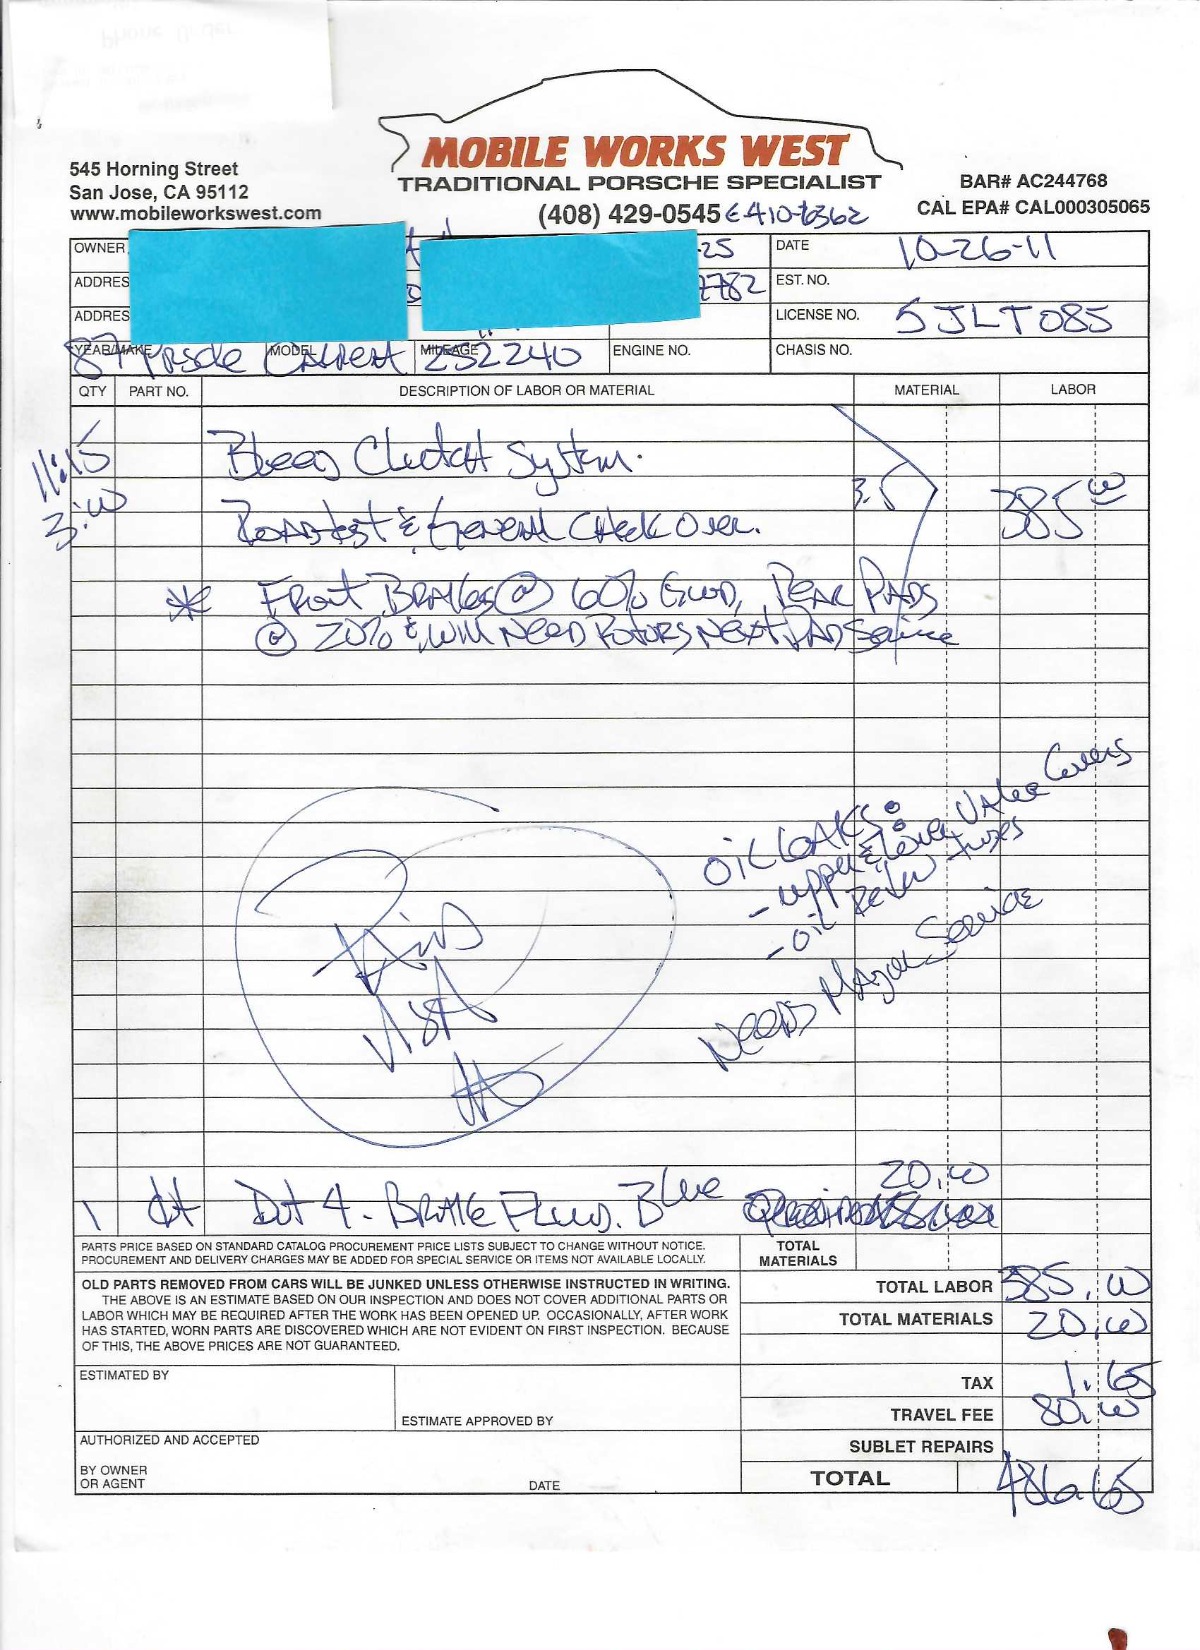 MOBILE WORKS WEST
TRADITIONAL PORSCHE SPECIALIST
545 Horning Street
San Jose, CA 95112
www.mobileworkswest.com
(408) 429-0545 410-6362
BAR# AC244768
CAL EPA# CAL000305065
OWNER -25 DATE 10-26-11
ADDRES 7782 EST. NO.
ADDRES LICENSE NO. 5JLT085
YEAR/MAKE 87 Porsche MODEL Carrera MILEAGE 252240 ENGINE NO. CHASIS NO.
QTY PART NO. DESCRIPTION OF LABOR OR MATERIAL MATERIAL LABOR
11:15 Bleed Clutch System.
3:00 Roadtest & General Check Over. 3.5 385.00
* Front Brakes @ 60% Good, Rear Pads
@ 20% & will NEED Rotors Next PAD Service
OIL LEAKS:
- upper & lower Valve Covers
- oil Return Tubes
NEEDS Major Service
Paid
VISA
20.00
1 Qt Dot 4. BRAKE Fluid. Blue
PARTS PRICE BASED ON STANDARD CATALOG PROCUREMENT PRICE LISTS SUBJECT TO CHANGE WITHOUT NOTICE.
PROCUREMENT AND DELIVERY CHARGES MAY BE ADDED FOR SPECIAL SERVICE OR ITEMS NOT AVAILABLE LOCALLY.
TOTAL
MATERIALS
OLD PARTS REMOVED FROM CARS WILL BE JUNKED UNLESS OTHERWISE INSTRUCTED IN WRITING.
THE ABOVE IS AN ESTIMATE BASED ON OUR INSPECTION AND DOES NOT COVER ADDITIONAL PARTS OR
LABOR WHICH MAY BE REQUIRED AFTER THE WORK HAS BEEN OPENED UP. OCCASIONALLY, AFTER WORK
HAS STARTED, WORN PARTS ARE DISCOVERED WHICH ARE NOT EVIDENT ON FIRST INSPECTION. BECAUSE
OF THIS, THE ABOVE PRICES ARE NOT GUARANTEED.
TOTAL LABOR 385.00
TOTAL MATERIALS 20.00
TAX 1.65
TRAVEL FEE 80.00
SUBLET REPAIRS
TOTAL 486.65
ESTIMATED BY
ESTIMATE APPROVED BY
AUTHORIZED AND ACCEPTED
BY OWNER
OR AGENT DATE